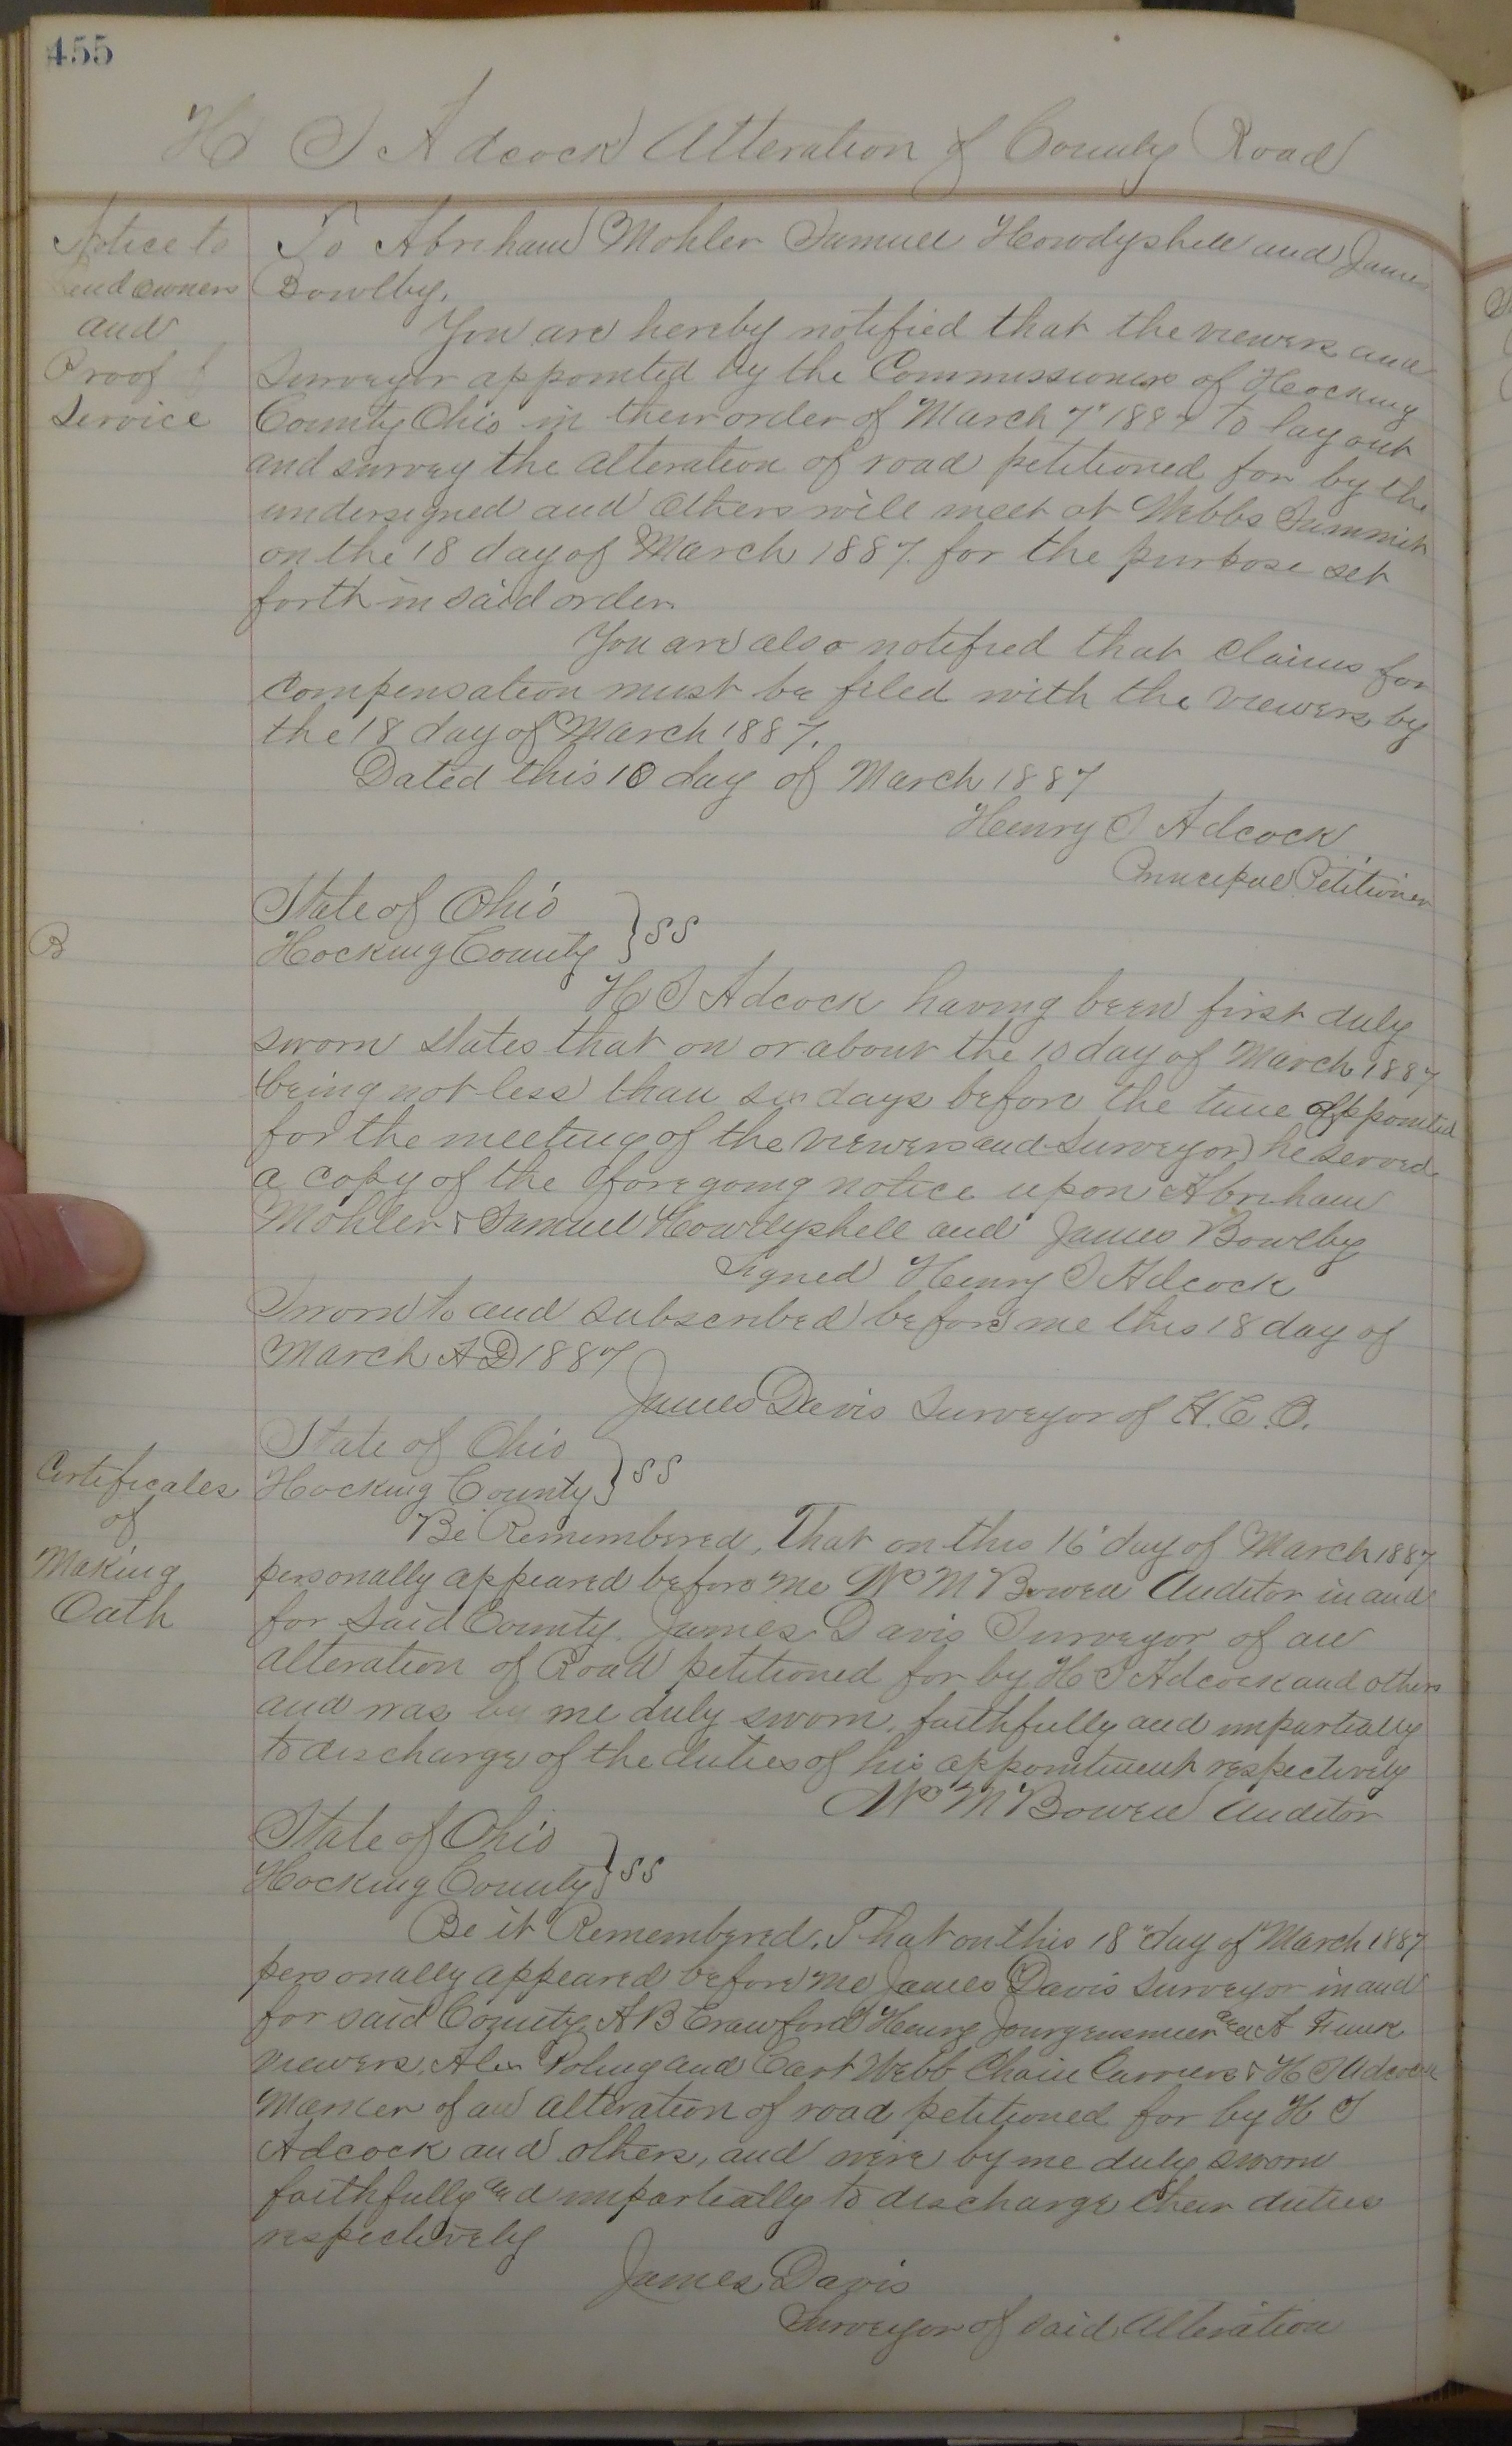 455
H S Adcock Alteration of County Road
Notice to
Land owners
and
Proof of
Service
To Abriham Mohler Samuel Howdyshell and James
Bowlby.
You are hereby notified that the viewers and
Surveyor appointed by the Commissioners of Hocking
County Ohio in their order of March 7" 1887 to lay out
and survey the alteration of road petitioned for by the
undersigned and others will meet at Webbs Summit
on the 18 day of March 1887. for the purpose set
forth in said order.
You are also notified that claims for
compensation must be filed with the viewers by
the 18 day of March 1887.
Dated this 10 day of March 1887
Henry S Adcock
Principal Petitioner
State of Ohio
Hocking County } SS
B
H S Adcock having been first duly
sworn states that on or about the 10 day of March 1887
(being not less than six days before the time appointed
for the meeting of the viewers and Surveyor) he served
a copy of the foregoing notice upon Abriham
Mohler & Samuel Howdyshell and James Bowlby
Signed Henry S Adcock
Sworn to and subscribed before me this 18 day of
March A D 1887
James Davis Surveyor of H. C. O.
Certificates
of
Making
Oath
State of Ohio
Hocking County } SS
Be Remembered, That on this 16" day of March 1887
personally appeared before me Wm M Bowen Auditor in and
for said County. James Davis Surveyor of an
alteration of Road petitioned for by H S Adcock and others
and was by me duly sworn, faithfully and impartially
to discharge of the duties of his appointment respectively
Wm M Bowen Auditor
State of Ohio
Hocking County } SS
Be it Remembered, That on this 18" day of March 1887
personally appeared before me James Davis Surveyor in and
for said County, A B Crawford Henry Jourgensmier and A Funk
viewers, Alex Poling and Cart Webb Chain Carriers & H S Adcock
Marker of an alteration of road petitioned for by H S
Adcock and others, and were by me duly sworn
faithfully and impartially to discharge their duties
respectively
James Davis
Surveyor of said Alteration